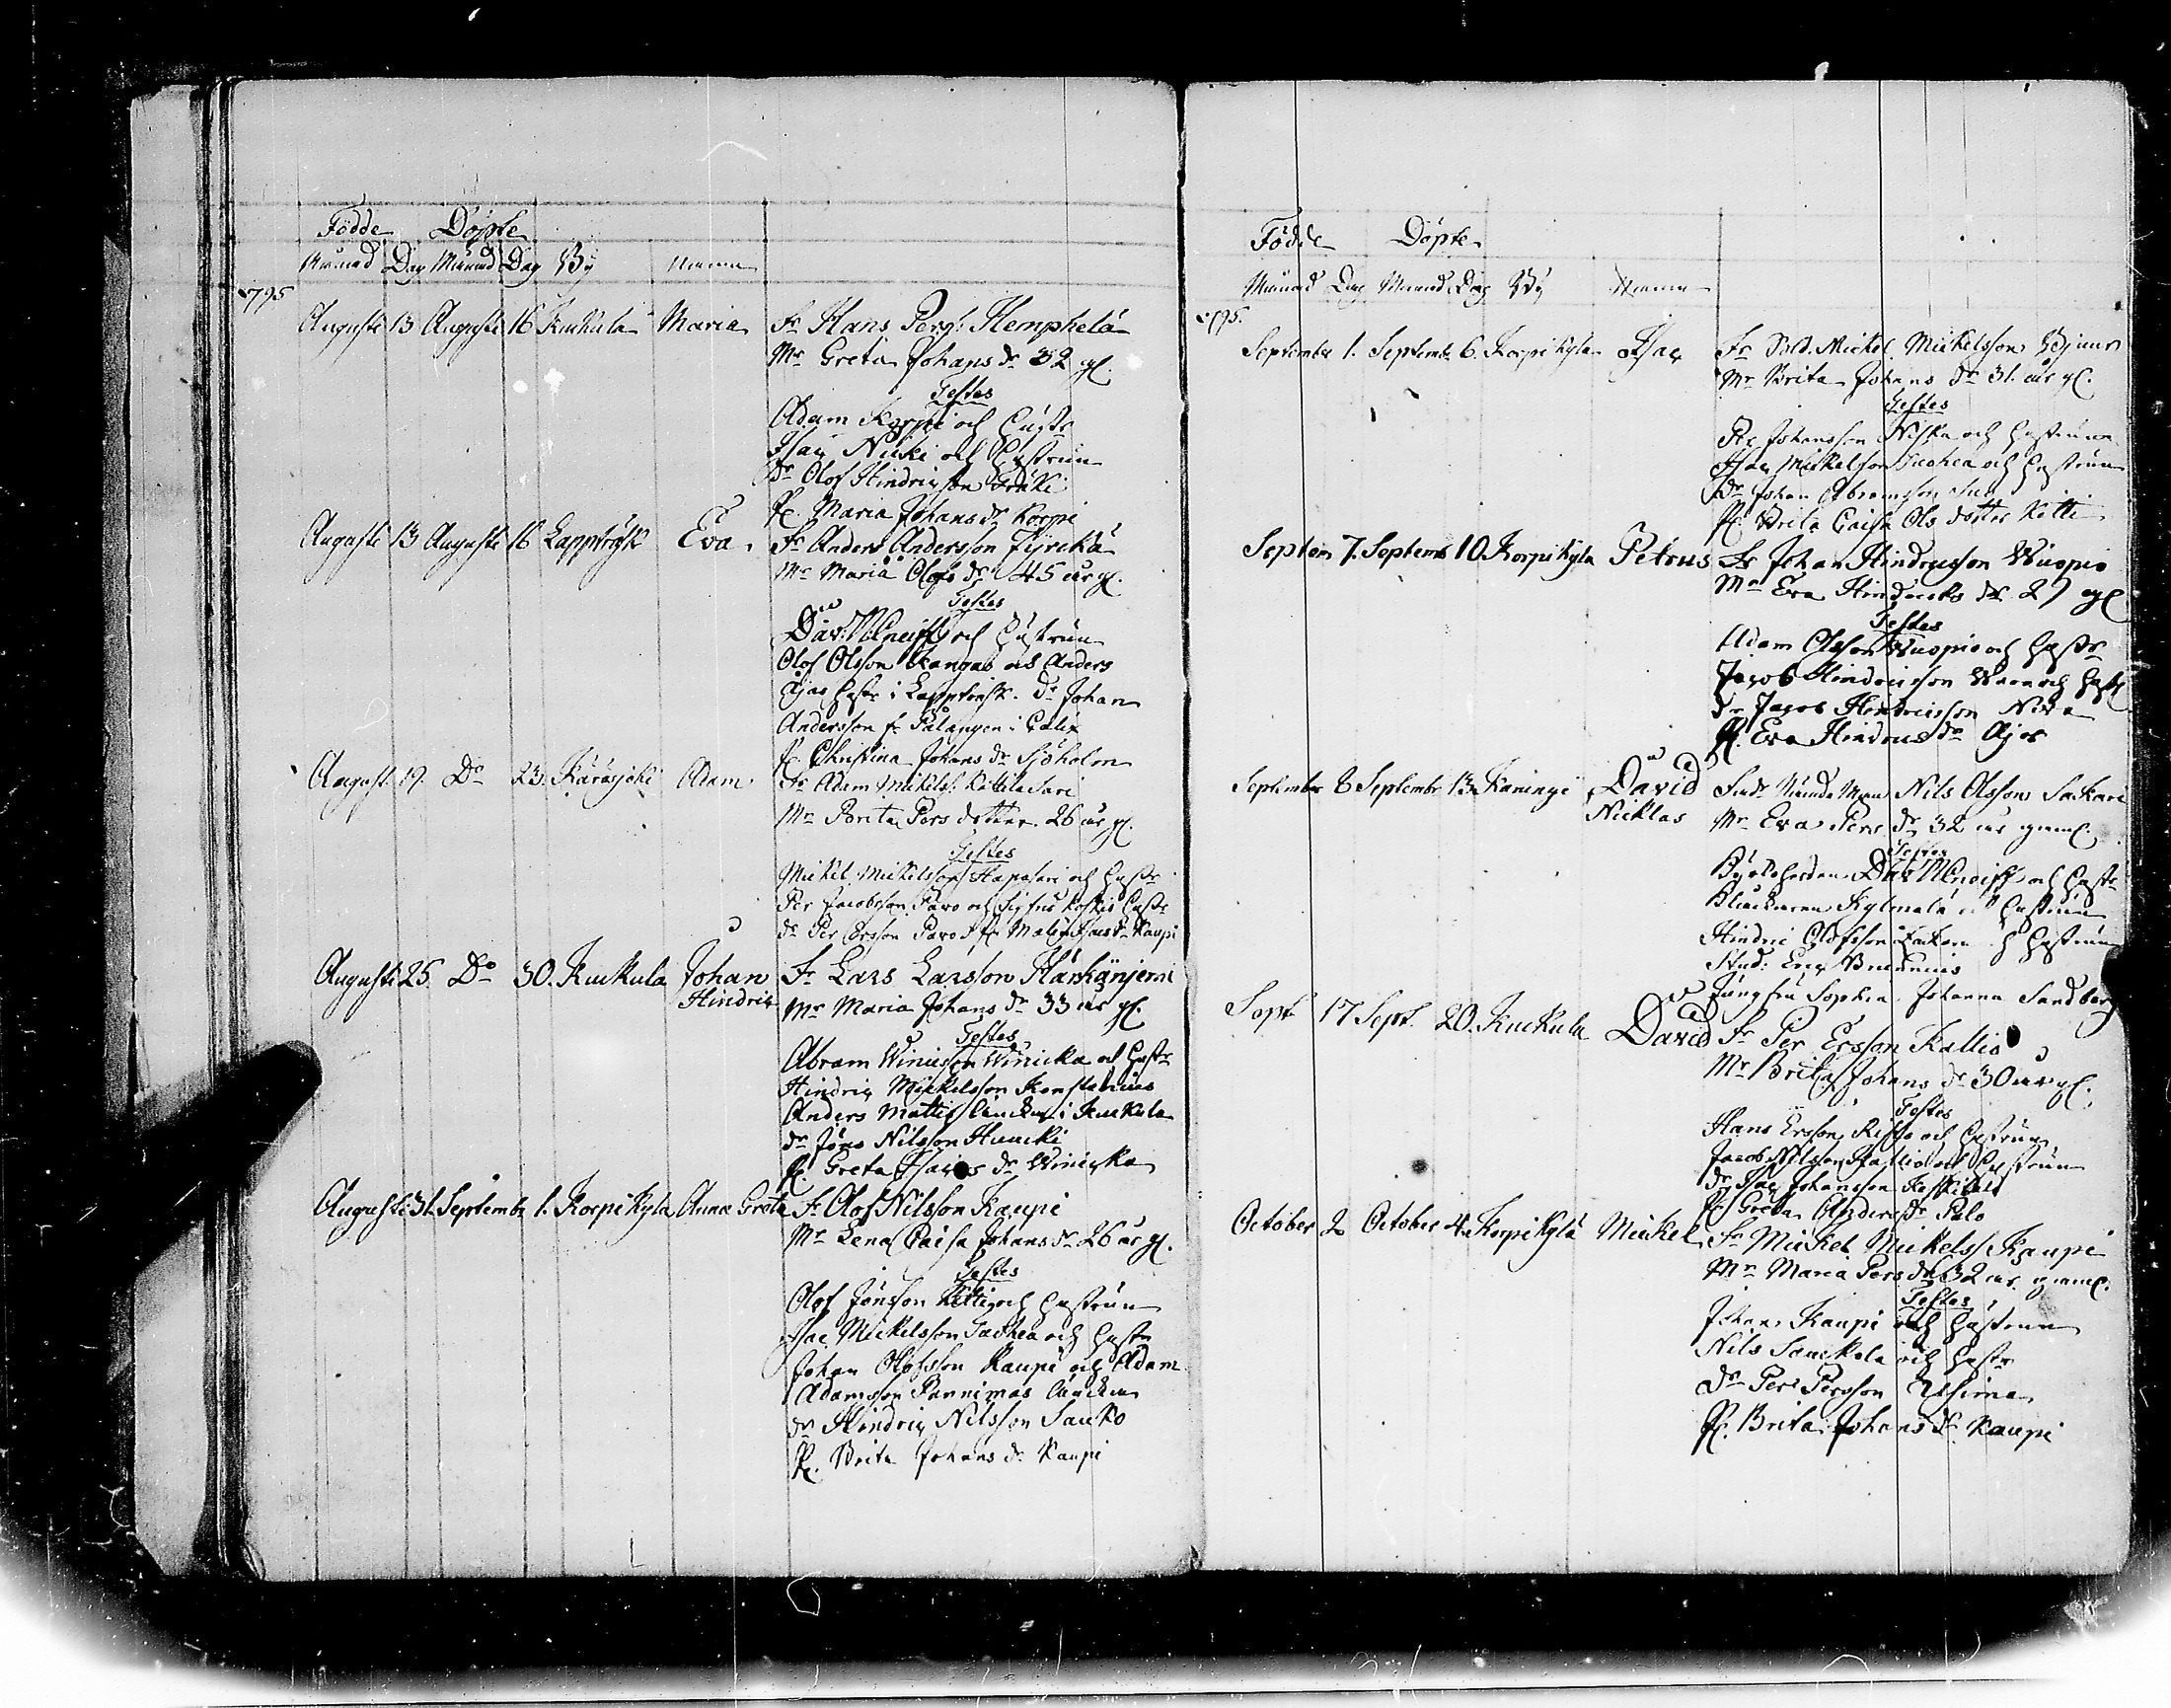 Födde Döpte
Månad Dag Månad Dag By Namn
1795
Augusti 13 Augusti 16 Kuckula Maria Fr Hans Pers: Hemphelä
Mr Greta Johans dr 32 gl.
Testes
Adam Korpi och hustr
Isac Niski och hustrun
Dr Olof Hindricsson
P. Maria Johans dr Korpi
Augusti 13 Augusti 16 Lappträsk Eva Fr Anders Andersson Fyrckä
Mr Maria Olofs dr 45 år gl.
Testes
Dav: och hustrun
Olof Olsson Kangas och Anders
hustr i Lappträsk. Dr Johan
Andersson fr Pålängen i Calix
P. Christina Johans dr Sjöholm
August. 19. Do 23. Karasjoki Adam Fr Adam Mickels: Kattilasari
Mr Brita Pers dotter 26 år gl.
Testes
Mickel Mickelsson Hapasari och hustr
Per Jacobsson Pavo och hustr
dr Per Ersson Pavo P. Kaupi
Augusti 25 Do 30. Kuckula Johan Fr Lars Larsson
Hindric Mr Maria Johans dr 33 år gl.
Testes
Abram Winicka och hustr
Hindric Mickelsson Konstenius
Anders Matts: änckan i Kuckula
dr Jöns Nilsson Huucki
P. Greta Isacs dr Winicka
Augusti 31. Septembr 1. Korpikyla Anna Greta Fr Olof Nilsson Kaupi
Mr Lena Caisa Johans dr 26 år gl.
Testes
Olof Jönsson Kitti och hustrun
Isac Mickelsson Tachea och hustr
Johan Olofsson Kaupi och Adam
Adamsson Pannimas änckan
dr Hindric Nilsson Sauko
P. Brita Johans dr Kaupi
Födde Döpte
Månad Dag Månad Dag By Namn
1795.
September 1. Septemb. 6. Korpikyla Isac Fr Sold. Mickel Mickelsson Bjuur
Mr Brita Johans dr 31. år gl.
Testes
Per Johansson Niska och hustrun
Isac Mickelsson Tachea och hustrun
Dr Johan Abramsson
P. Brita Caisa Ols dotter Kitti
Septem 7. Septemb 10. Korpikyla Petrus Fr Johan Hindricsson Wuopio
Mr Eva Hindricks dr 27 gl
Testes
Adam Olsson Wuopio och hustr
Jacob Hindricsson och hustr
dr Jacob Hindricsson Niva
P. Eva Hindrics dr
September 8 Septembr 13. Karungi David Nämdeman Nils Olsson Sackari
Nicklas Mr Eva Pers dr 32 år gammel.
Testes
Dav: och hustr
Kylmälä och hustrun
Hindric Olofsson och hustrun
Stud: Eric Brunnius
Jungfru Sophia Johanna Sandberg
Sept 17 Sept. 20. Kuckula David Fr Per Ersson Kallio
Mr Brita Johans dr 30 år gl.
Testes
Hans Ersson och hustrun
Jacob Nilsson och hustrun
dr Isac Johansson
P. Greta Anders dr Palo
October 2 October 4. Korpikylä Mickel Fr Mickel Mickels: Kaupi
Mr Maria Pers dr 32 år gammel.
Testes
Johan Kaupi och hustrun
Nils Sauckola och hustr
Dr Per Persson
P. Brita Johans dr Kaupi